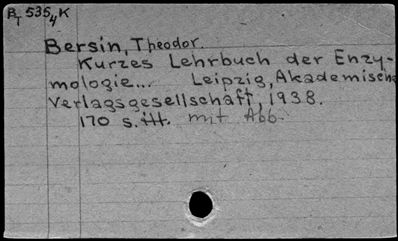 B₇ 535,4 K
Bersin, Theodor.
Kurzes Lehrbuch der Enzy-
mologie... Leipzig, Akademische
Verlagsgesellschaft, 1938.
170 s. mit Abb.